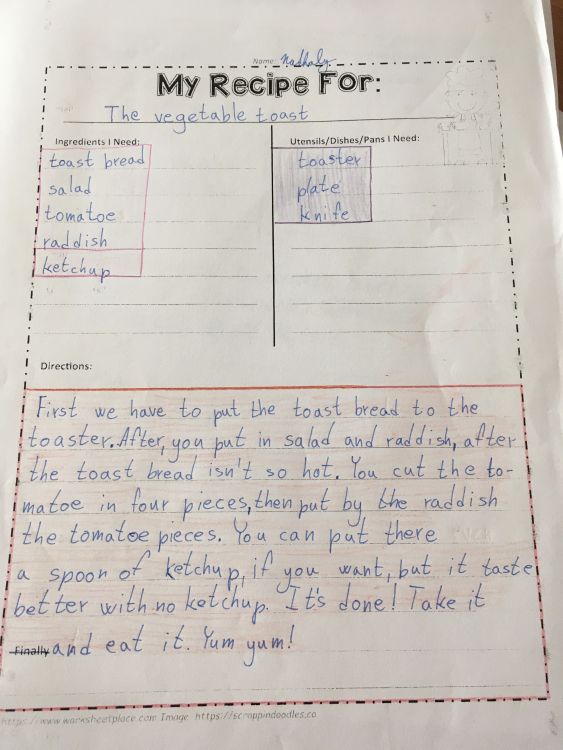 Name: Nadhaly
My Recipe For:
The vegetable toast
Ingredients I Need:
toast bread
salad
tomatoe
raddish
ketchup
Utensils/Dishes/Pans I Need:
toaster
plate
knife
Directions:
First we have to put the toast bread to the
toaster. After, you put in salad and raddish, after
the toast bread isn't so hot. You cut the to-
matoe in four pieces, then put by the raddish
the tomatoe pieces. You can put there
a spoon of ketchup, if you want, but it taste
better with no ketchup. It's done! Take it
Finally and eat it. Yum yum!
https://www.worksheetplace.com Image: https://scrappindoodles.ca